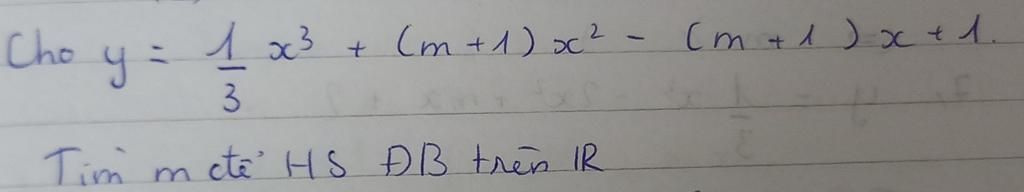 Cho y = 1/3 x³ + (m + 1) x² - (m + 1) x + 1.
Tìm m để HS ĐB trên ℝ